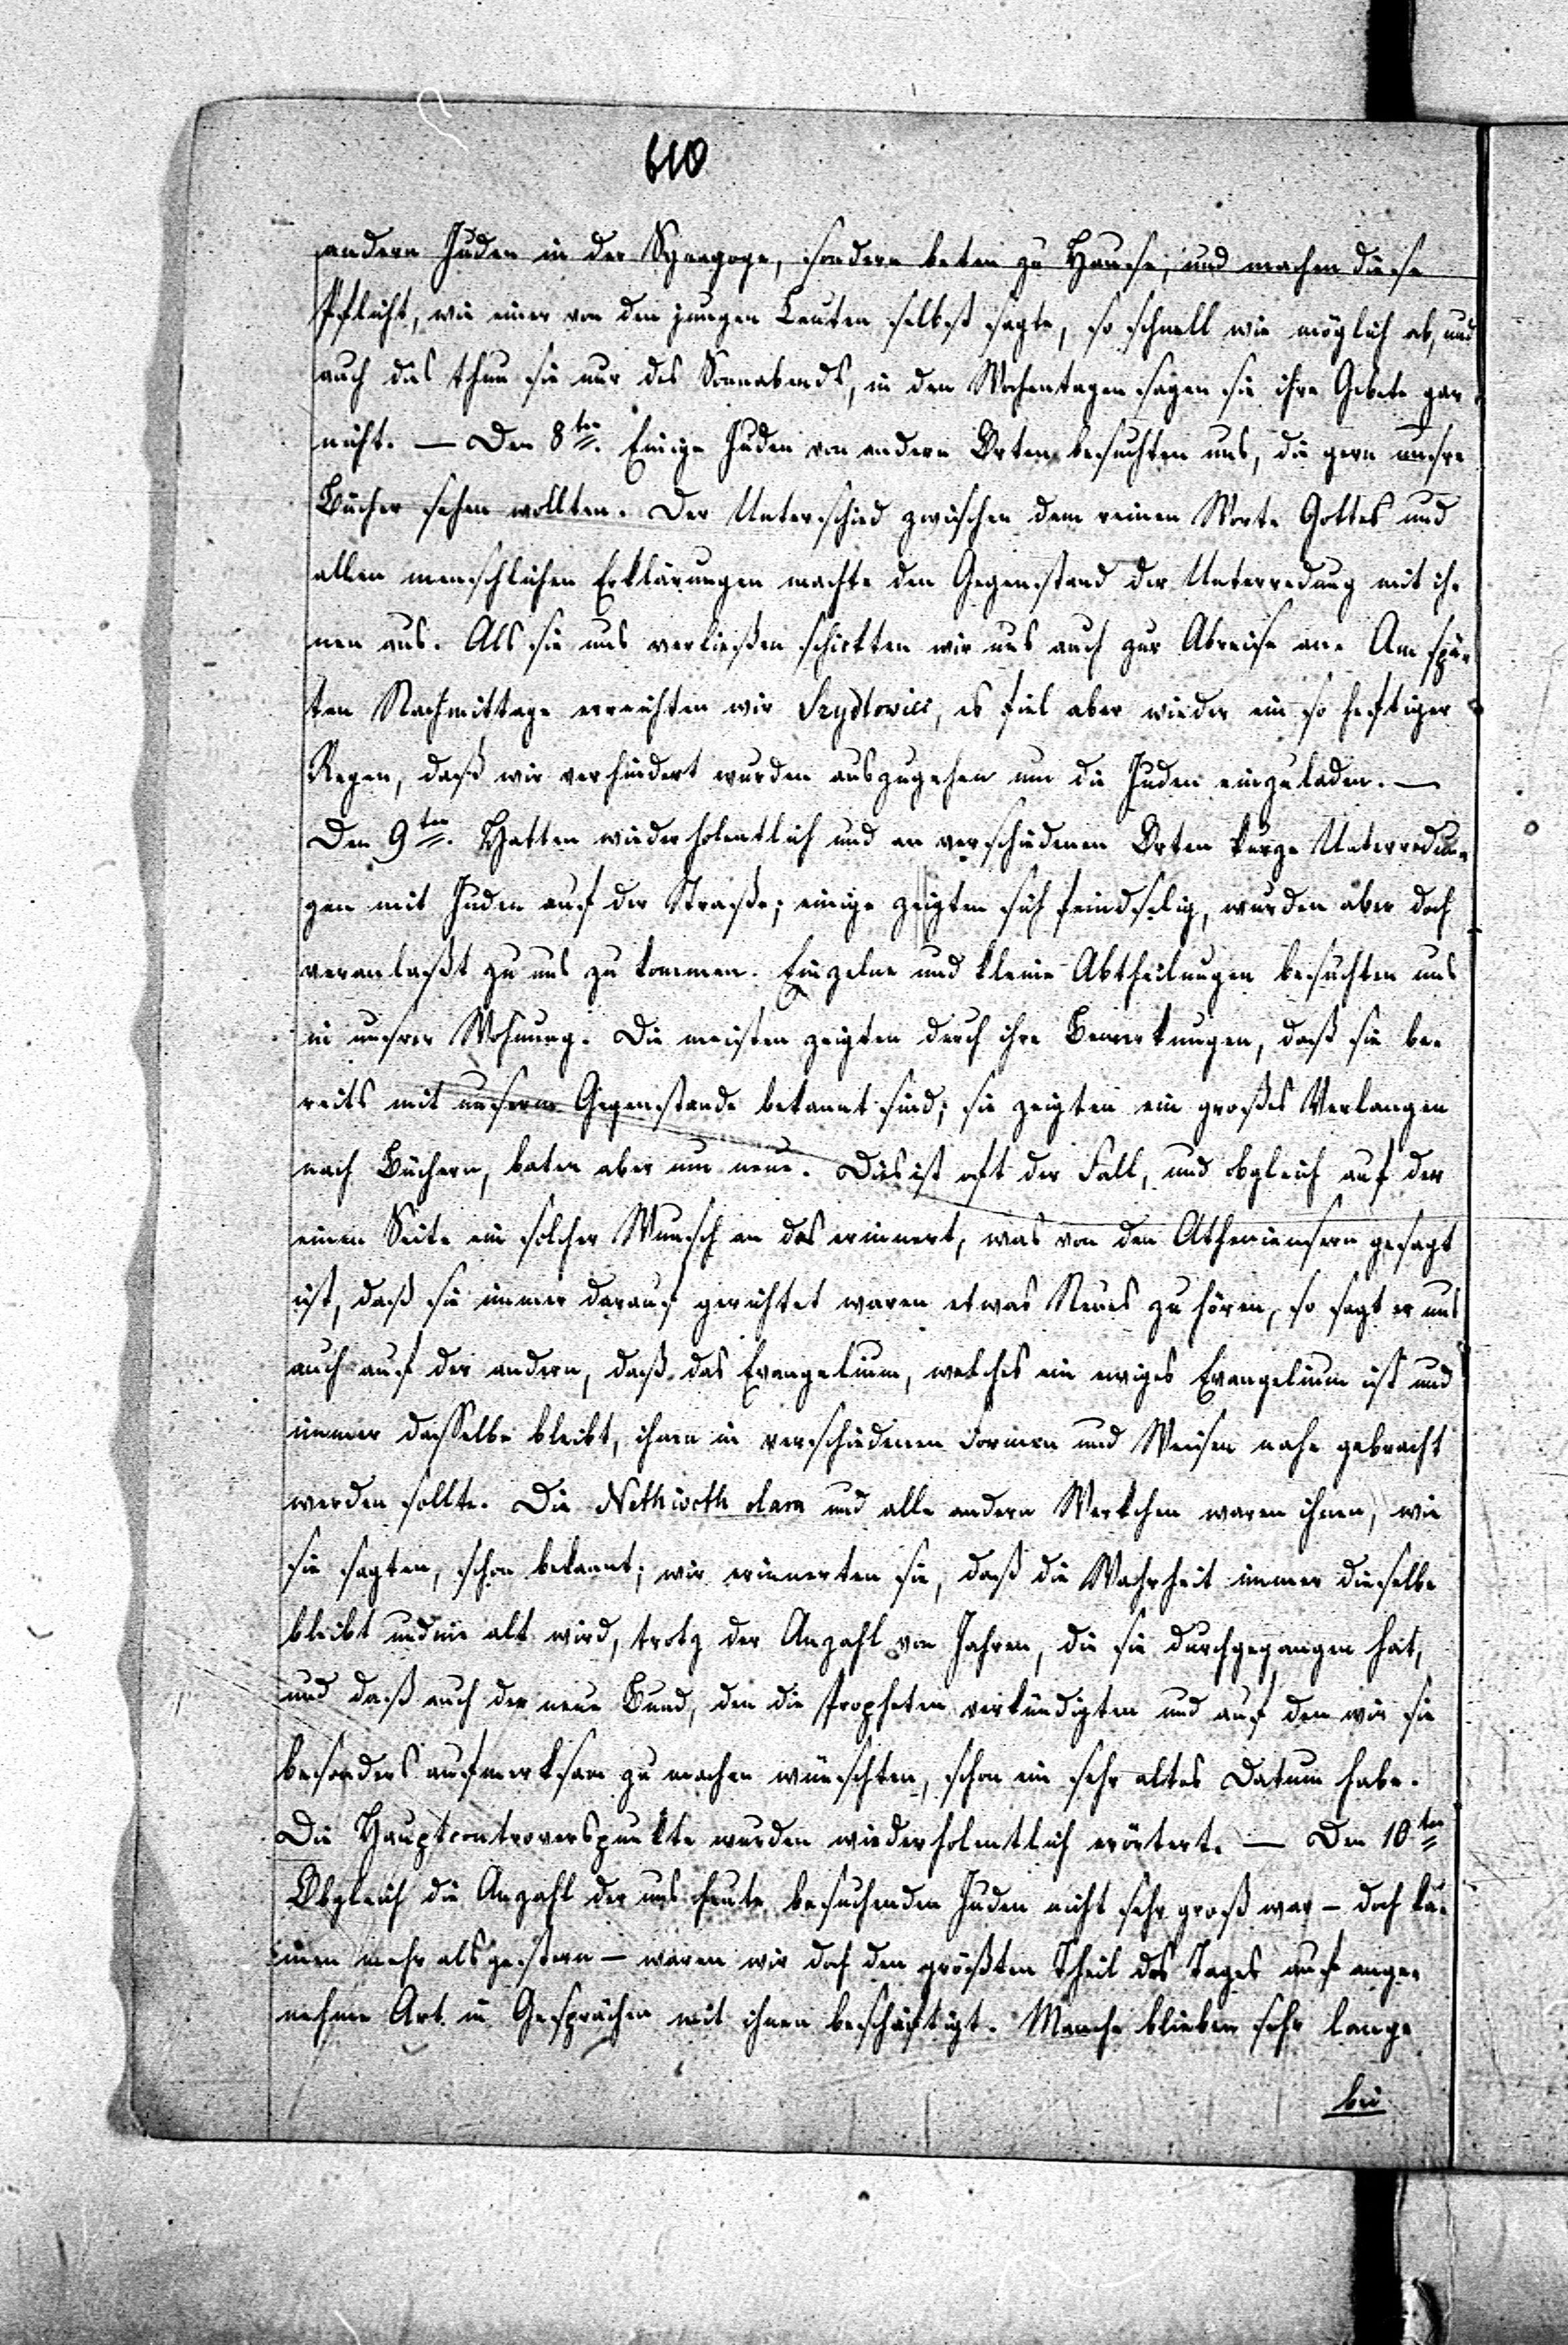 610
andern Juden in der Synagoge, sondern beten zu Hause, und machen diese
Pflicht, wie einer von den jungen Leuten selbst sagte, so schnell wie möglich ab, und
auch das thun sie nur des Sonnabends, in den Wochentagen sagen sie ihre Gebete gar
nicht. — Den 8ten. Einige Juden von andern Orten besuchten uns, die gern unsre
Bücher sehen wollten. Der Unterschied zwischen dem reinen Worte Gottes und
allen menschlichen Erklärungen machte den Gegenstand der Unterredung mit ih-
nen aus. Als sie uns verließen schickten wir uns auch zur Abreise an. Am spä-
ten Nachmittage erreichten wir Szydlovice, es fiel aber wieder ein so heftiger
Regen, daß wir verhindert wurden auszugehen um die Juden einzuladen. —
Den 9ten. Hatten wiederholentlich und an verschiedenen Orten kurze Unterredun-
gen mit Juden auf der Straße; einige zeigten sich feindselig, wurden aber doch
veranlaßt zu uns zu kommen. Einzelne und kleine Abtheilungen besuchten uns
in unsrer Wohnung. Die meisten zeigten durch ihre Bemerkungen, daß sie be-
reits mit unserm Gegenstande bekannt sind; sie zeigten ein großes Verlangen
nach Büchern, baten aber um neue. Dies ist oft der Fall, und obgleich auf der
einen Seite ein solcher Wunsch an das erinnert, was von den Atheniensern gesagt
ist, daß sie immer darauf gerichtet waren etwas Neues zu hören, so sagt er uns
auch auf der andern, daß das Evangelium, welches ein ewiges Evangelium ist und
immer dasselbe bleibt, ihnen in verschiedenen Formen und Weisen nahe gebracht
werden sollte. Die Nethivoth olam und alle andern Werkchen waren ihnen, wie
sie sagten, schon bekannt; wir erinnerten sie, daß die Wahrheit immer dieselbe
bleibt und nie alt wird, trotz der Anzahl von Jahren, die sie durchgegangen hat,
und daß auch der neue Bund, den die Propheten verkündigten und auf den wir sie
besonders aufmerksam zu machen wünschten, schon ein sehr altes Datum habe.
Die Hauptcontroverspunkte wurden wiederholentlich erörtert. — Den 10ten
Obgleich die Anzahl der uns heute besuchenden Juden nicht sehr groß war – doch ka-
men mehr als gestern – waren wir doch den größten Theil des Tages auf ange-
nehme Art in Gesprächen mit ihnen beschäftigt. Manche blieben sehr lange
bei